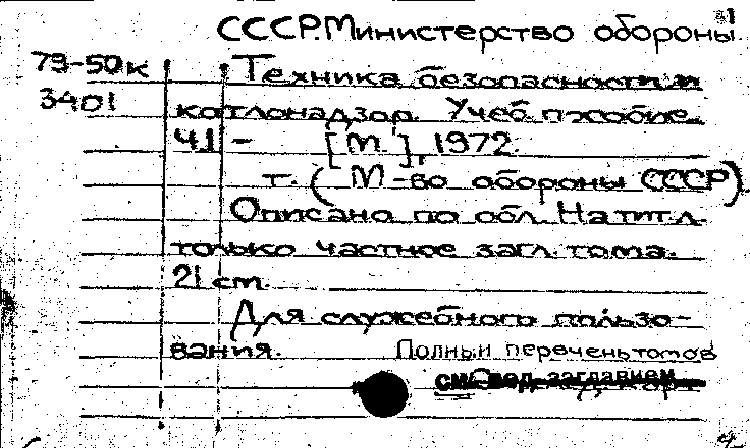 СССР. Министерство обороны.
79-50к Техника безопасности и
3401 котлонадзор. Учеб. пособие.
Ч1 - [М], 1972.
т. (М-во обороны СССР)
Описано по обл. На тит. л.
только частное загл. тома.
21 см.
Для служебного пользо-
вания. Полный перечень томов
см.